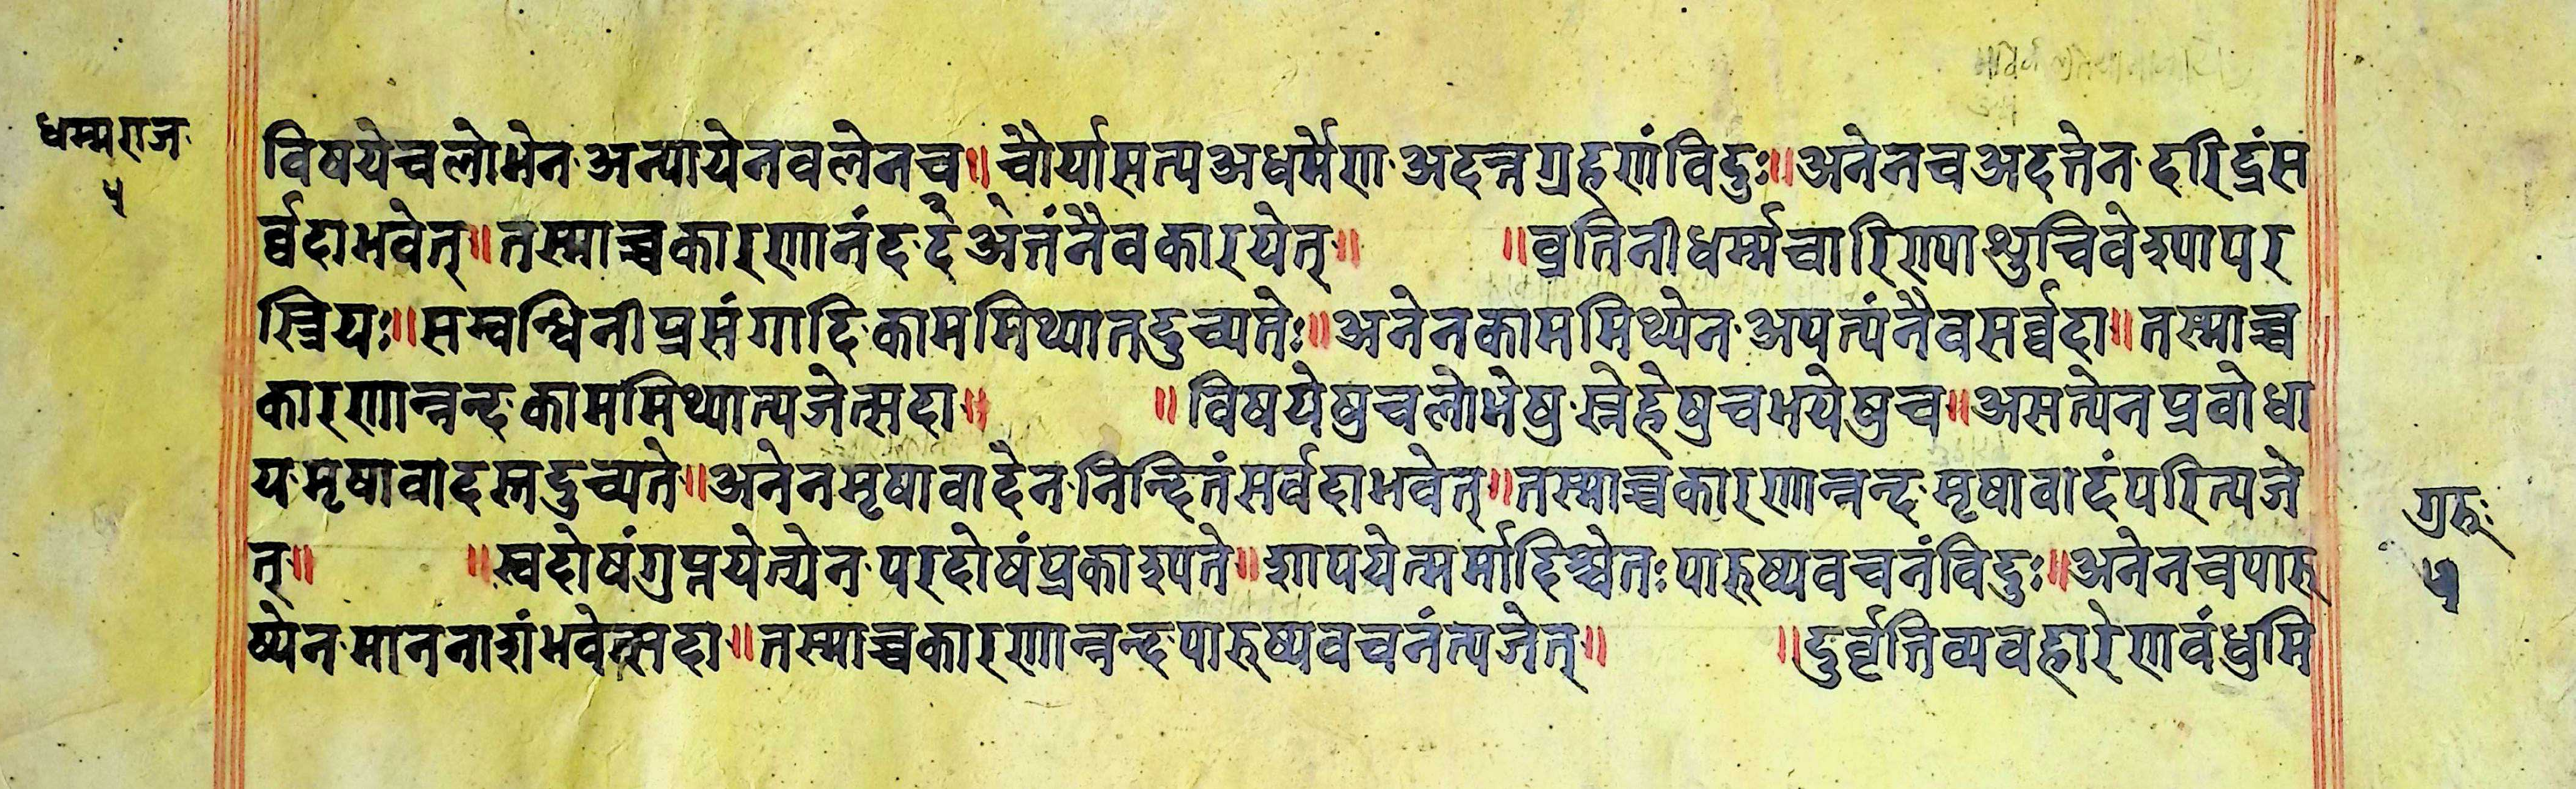 धम्मराज
५
विषयेचलोभेन अन्यायेनवलेनच॥चौर्यासत्यअधर्मेण अदन्नग्रहणंविदुः॥अनेनचअदत्तेन दरिद्रंस
र्व्वदाभवेत्॥तस्माच्चकारणानंद अत्तंनैवकारयेत्॥ ॥व्रतिनीधर्म्मचारिण्याश्शुचिवेश्यापर
स्त्रियः॥सम्वन्धिनीप्रसंगादि काममिथ्यातदुच्यतेः॥अनेनकाममिथ्येन अपत्यंनैवसर्व्वदा॥तस्माच्च
कारणान्नन्द काममिथ्यात्यजेत्सदा॥ ॥विषयेषुचलोभेषु स्नेहेषुचभयेषुच॥असत्येनप्रवोधा
य मृषावादस्तदुच्यते॥अनेनमृषावादेन निन्दितंसर्वदाभवेत्॥तस्माच्चकारणान्नन्द मृषावादंपरित्यजे
त्॥ ॥स्वदोषंगुप्नयेत्येन परदोषंप्रकाश्यते॥शापयेत्मर्माहिश्चेतः पारुष्यवचनंविदुः॥अनेनचपारु
ष्येन माननाशंभवेत्सदा॥तस्माच्चकारणान्नन्द पारुष्यवचनंत्यजेत्॥ ॥दुर्वृत्तिव्यवहारेणवंधुमि
गुरुः
५